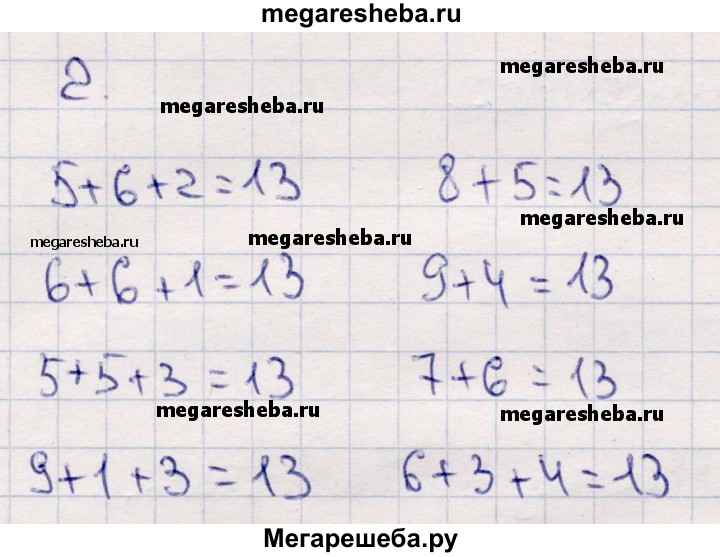 megaresheba.ru
2.
megaresheba.ru
megaresheba.ru
5+6+2=13 8+5=13
megaresheba.ru megaresheba.ru megaresheba.ru
6+6+1=13 9+4=13
5+5+3=13 7+6=13
megaresheba.ru megaresheba.ru
9+1+3=13 6+3+4=13
Мегарешеба.ру